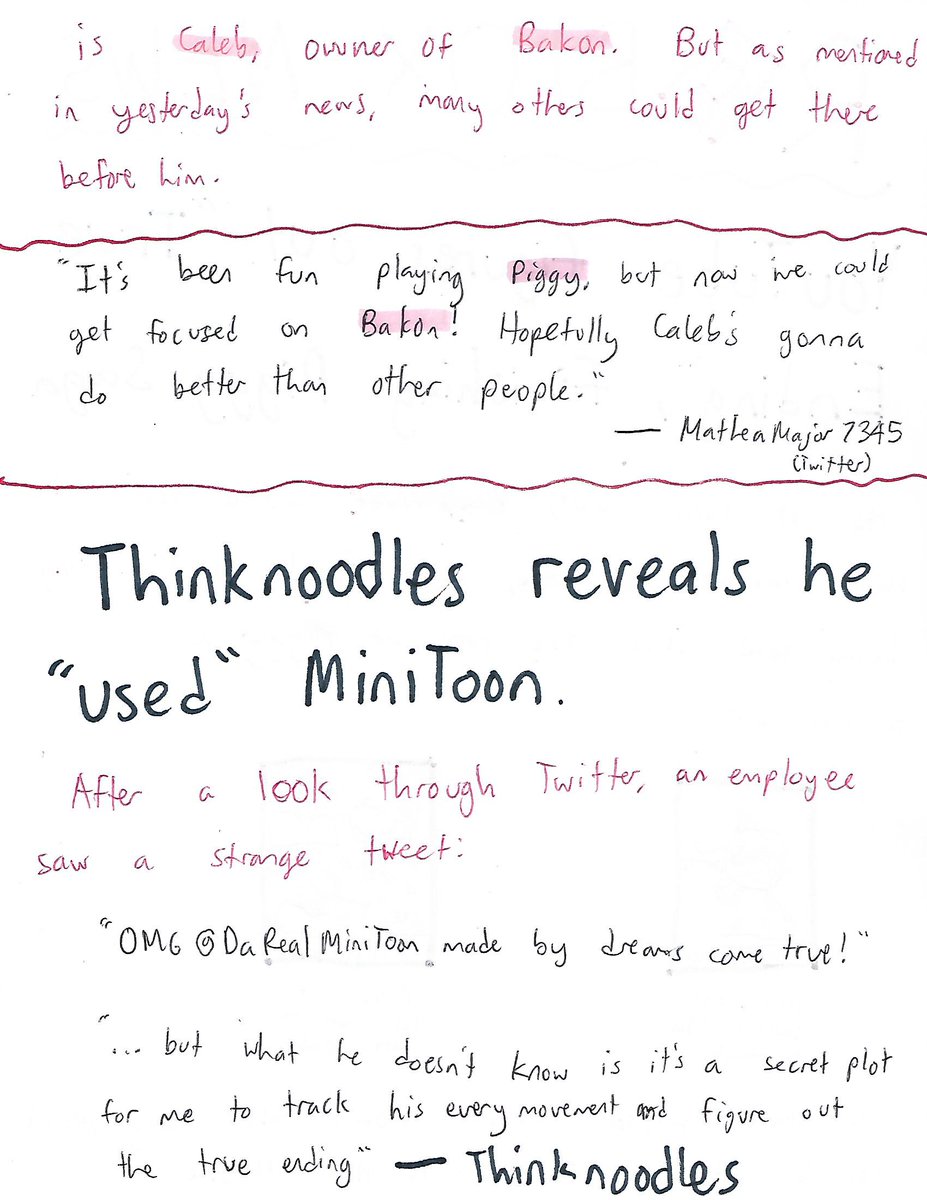 is Caleb, owner of Bakon. But as mentioned
in yesterday's news, many others could get there
before him.
"It's been fun playing Piggy, but now we could
get focused on Bakon! Hopefully Caleb's gonna
do better than other people."
— MatleaMajor7345
(Twitter)
Thinknoodles reveals he
"used" MiniToon.
After a look through Twitter, an employee
saw a strange tweet:
"OMG @DaRealMiniToon made by dreams come true!"
"... but what he doesn't know is it's a secret plot
for me to track his every movement and figure out
the true ending" — Thinknoodles